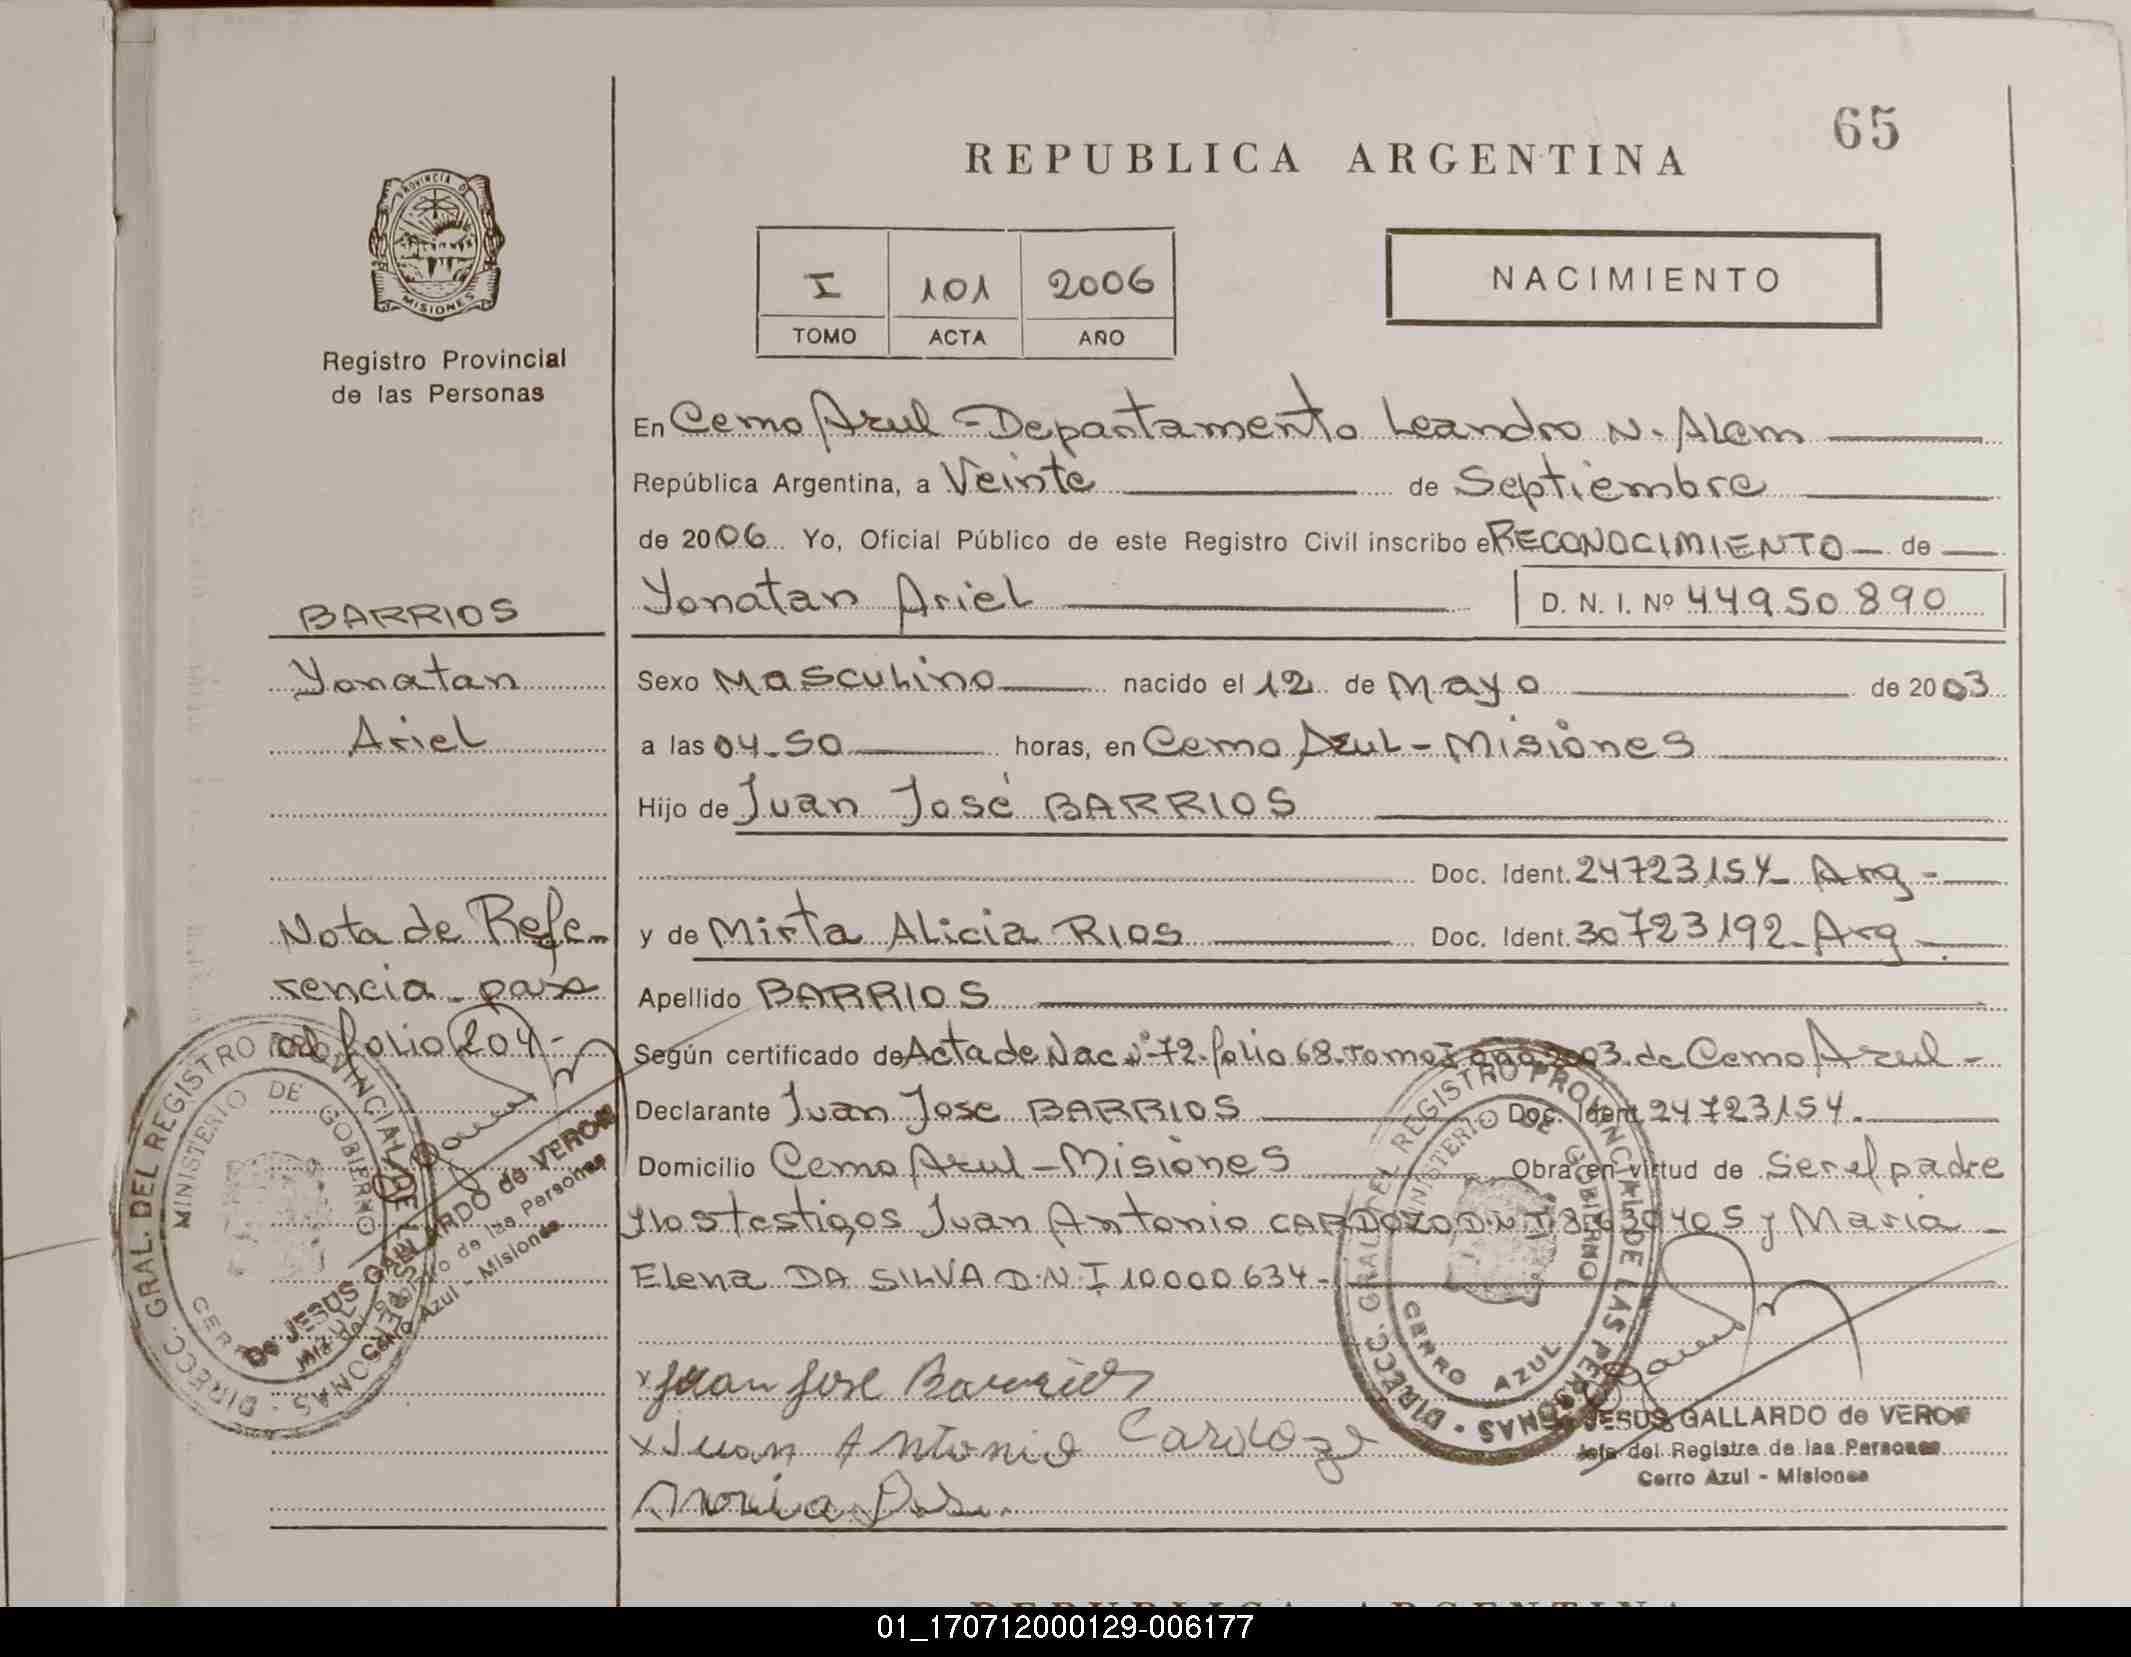 65
REPUBLICA ARGENTINA
PROVINCIA DE
MISIONES
Registro Provincial
de las Personas
I 101 2006
TOMO ACTA AÑO
NACIMIENTO
En Cerro Azul - Departamento Leandro N. Alem
República Argentina, a Veinte de Septiembre
de 2006 Yo, Oficial Público de este Registro Civil inscribo el RECONOCIMIENTO de
Yonatan Ariel D. N. I. Nº 44950890
BARRIOS
Yonatan
Ariel
Sexo Masculino nacido el 12 de Mayo de 2003
a las 04-50 horas, en Cerro Azul - Misiones
Hijo de Juan José BARRIOS
Doc. Ident. 24723154 - Arg -
y de Mirta Alicia RIOS Doc. Ident. 30723192 - Arg
Apellido BARRIOS
Nota de Refe-
rencia pasa
al folio 204-
Según certificado de Acta de Nac Nº 72 folio 68 Tomo I año 2003 de Cerro Azul -
Declarante Juan Jose BARRIOS Doc. Ident 24723154.
Domicilio Cerro Azul - Misiones Obra en virtud de Ser el padre
y los testigos Juan Antonio CARDOZO D.N.I y Maria
Elena DA SILVA D.N.I 10000634-
x Juan Jose Barrios
x Juan Antonio Cardozo
Maria
DIRECC. GRAL. DEL REGISTRO PROVINCIAL DE LAS PERSONAS
MINISTERIO DE GOBIERNO
CERRO AZUL
De JESUS GALLARDO de VERON
Jefe del Registro de las Personas
Cerro Azul - Misiones
DIRECC. GRAL. DEL REGISTRO PROVINCIAL DE LAS PERSONAS
MINISTERIO DE GOBIERNO
CERRO AZUL
JESUS GALLARDO de VERON
Jefe del Registro de las Personas
Cerro Azul - Misiones
REPUBLICA ARGENTINA
01_170712000129-006177